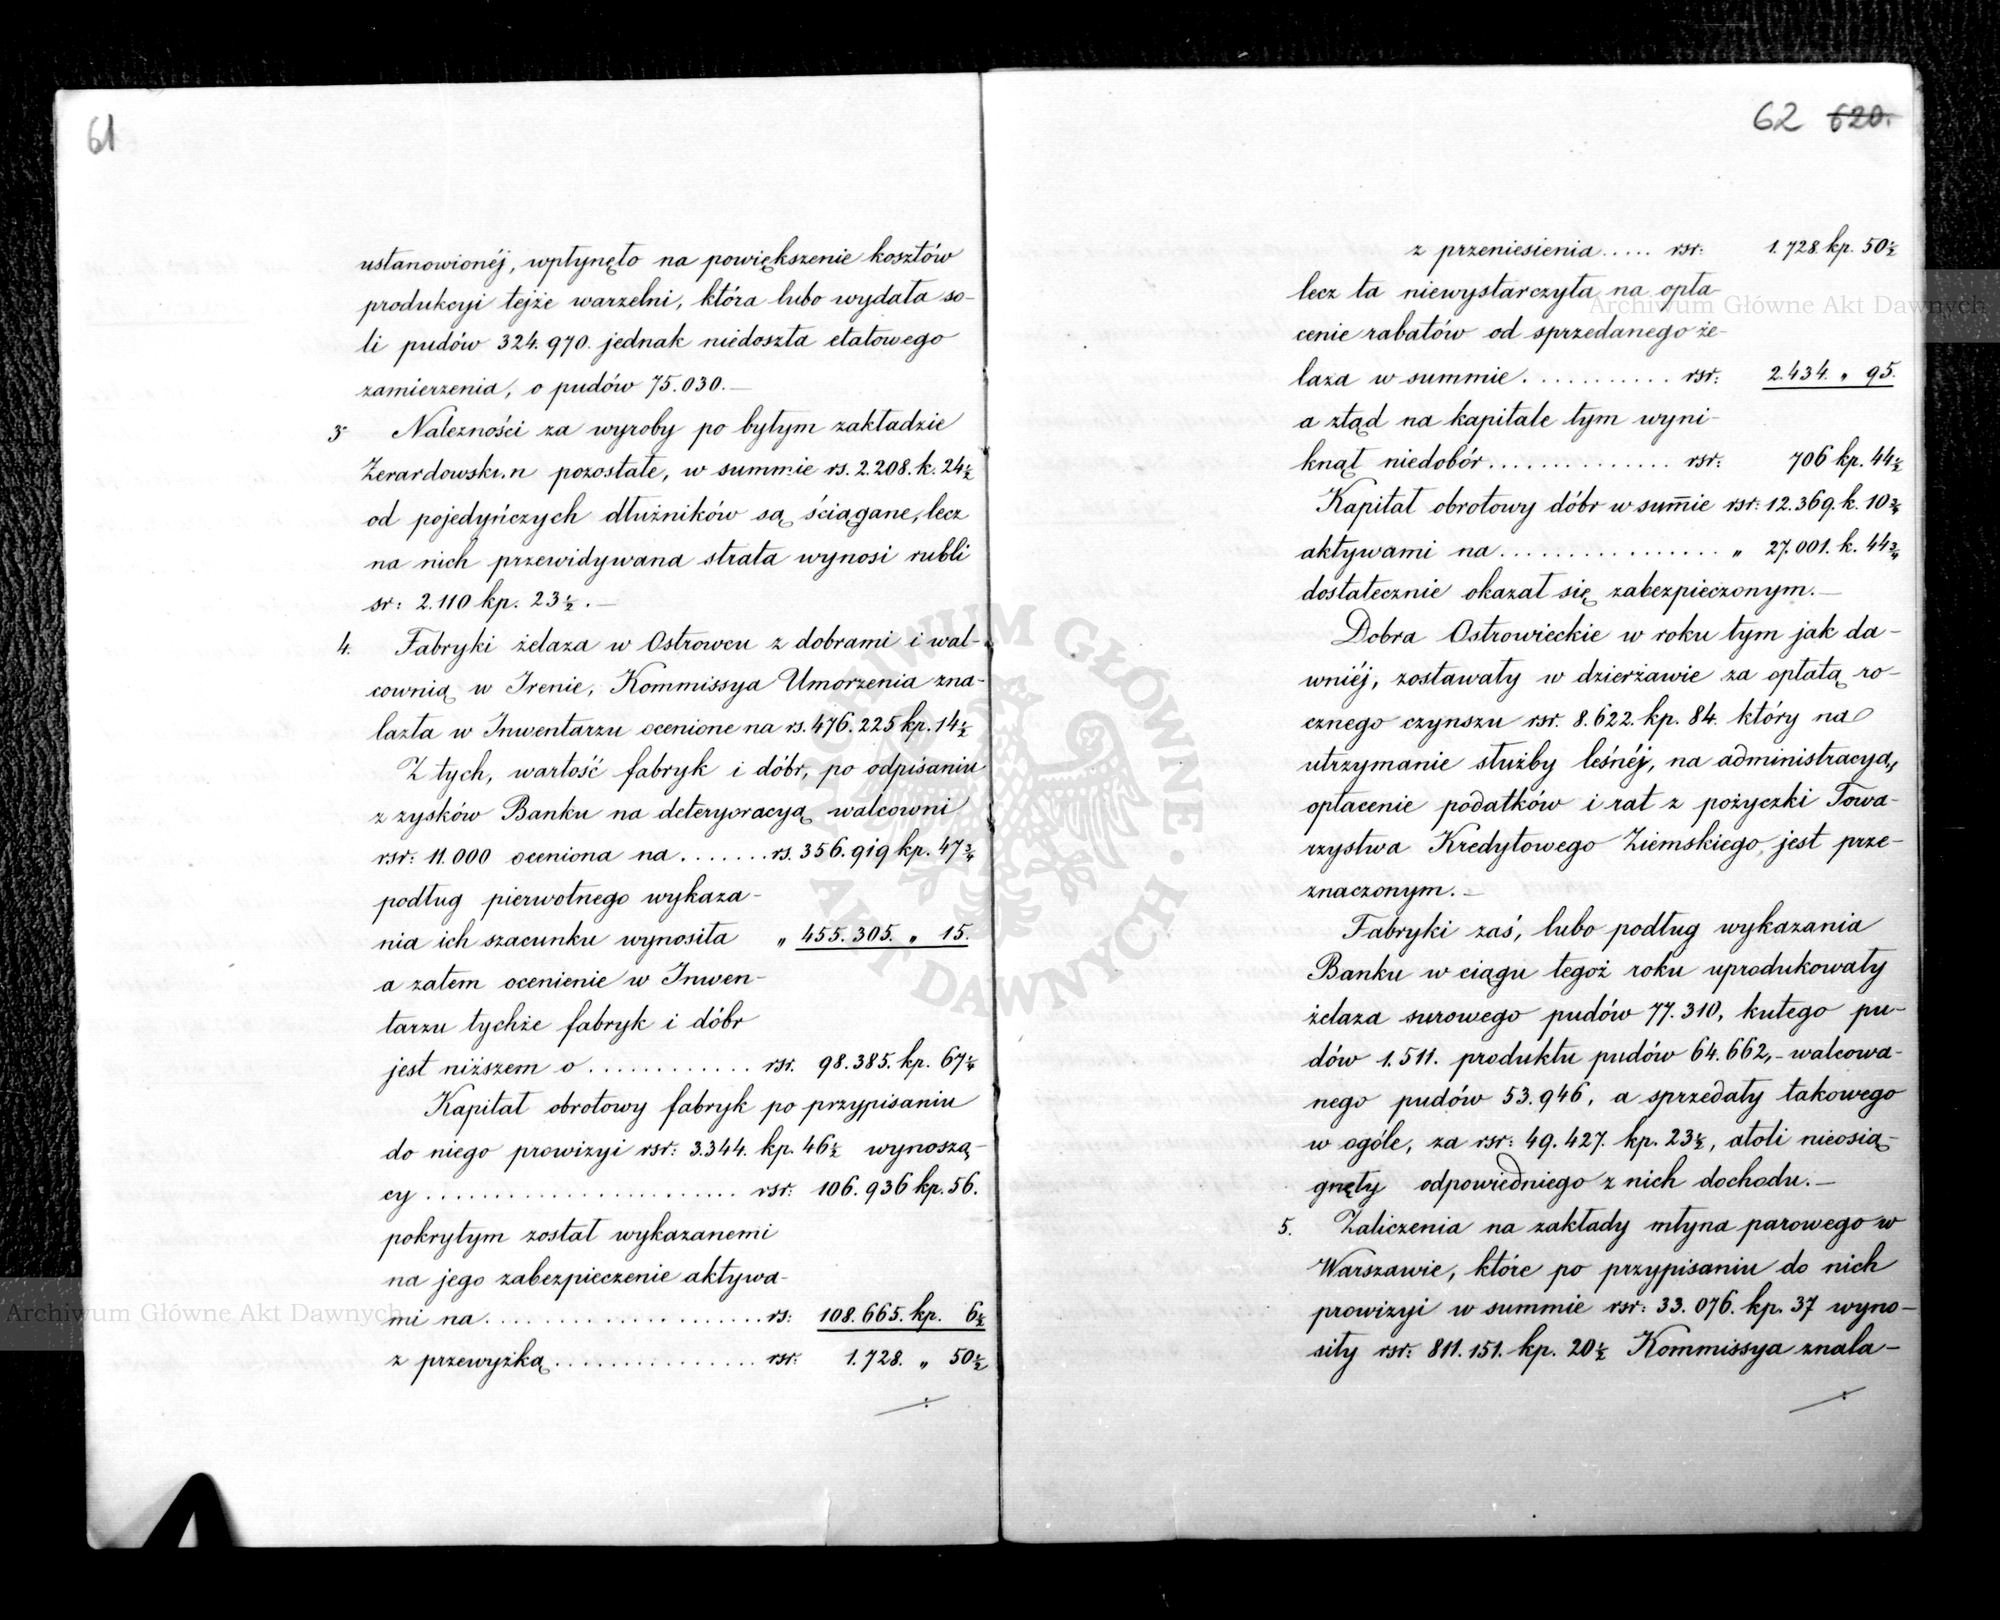 61
ustanowionéj, wpłynęło na powiększenie kosztów
produkcyi tejże warzelni, która lubo wydała so-
li pudów 324.970. jednak niedoszła etatowego
zamierzenia, o pudów 75.030.—
3 Należności za wyroby po byłym zakładzie
Żerardowskim pozostałe, w summie rs. 2.208. k. 24½
od pojedyńczych dłużników są ściągane, lecz
na nich przewidywana strata wynosi rubli
sr: 2.110 kp. 23½.—
4. Fabryki żelaza w Ostrowcu z dobrami i wal-
cownią w Irenie, Kommissya Umorzenia zna-
lazła w Inwentarzu ocenione na rs. 476.225 kp. 14½
Z tych, wartość fabryk i dóbr, po odpisaniu
z zysków Banku na deterjoracyą walcowni
rsr: 11.000 oceniona na.......rs. 356.919 kp. 47¾
podług pierwotnego wykaza-
nia ich szacunku wynosiła „ 455.305. „ 15.
a zatem ocenienie w Inwen-
tarzu tychże fabryk i dóbr
jest niższem o............ rsr. 98.385. kp. 67¼
Kapitał obrotowy fabryk po przypisaniu
do niego prowizyi rsr: 3.344. kp. 46½ wynoszą-
cy....................... rsr: 106.936 kp. 56.
pokrytym został wykazanemi
na jego zabezpieczenie aktywa-
mi na.....................rs: 108.665. kp. 6½
z przewyżką............... rsr: 1.728. „ 50½
62 620.
z przeniesienia..... rsr: 1.728 kp. 50½
lecz ta niewystarczyła na opła-
cenie rabatów od sprzedanego że-
laza w summie........... rsr: 2.434. „ 95.
a ztąd na kapitale tym wyni-
knął niedobór............. rsr: 706 kp. 44½
Kapitał obrotowy dóbr w sum̄ie rsr: 12.369. k. 10¾
aktywami na................ „ 27.001. k. 44¾
dostatecznie okazał się zabezpieczonym.—
Dobra Ostrowieckie w roku tym jak da-
wniéj, zostawały w dzierżawie za opłatą ro-
cznego czynszu rsr. 8.622. kp. 84. który na
utrzymanie służby leśnéj, na administracyą,
opłacenie podatków i rat z pożyczki Towa-
rzystwa Kredytowego Ziemskiego, jest prze-
znaczonym.—
Fabryki zaś, lubo podług wykazania
Banku w ciągu tegoż roku uprodukowały
żelaza surowego pudów 77.310, kutego pu-
dów 1.511. produktu pudów 64.662,- walcowa-
nego pudów 53.946, a sprzedały takowego
w ogóle, za rsr: 49.427. kp. 23½, atoli nieosią-
gnęły odpowiedniego z nich dochodu.—
5. Zaliczenia na zakłady młyna parowego w
Warszawie, które po przypisaniu do nich
prowizyi w summie rsr: 33.076. kp. 37 wyno-
siły rsr: 811.151. kp. 20½ Kommissya znala-
Archiwum Główne Akt Dawnych
Archiwum Główne Akt Dawnych
ARCHIWUM GŁÓWNE AKT DAWNYCH